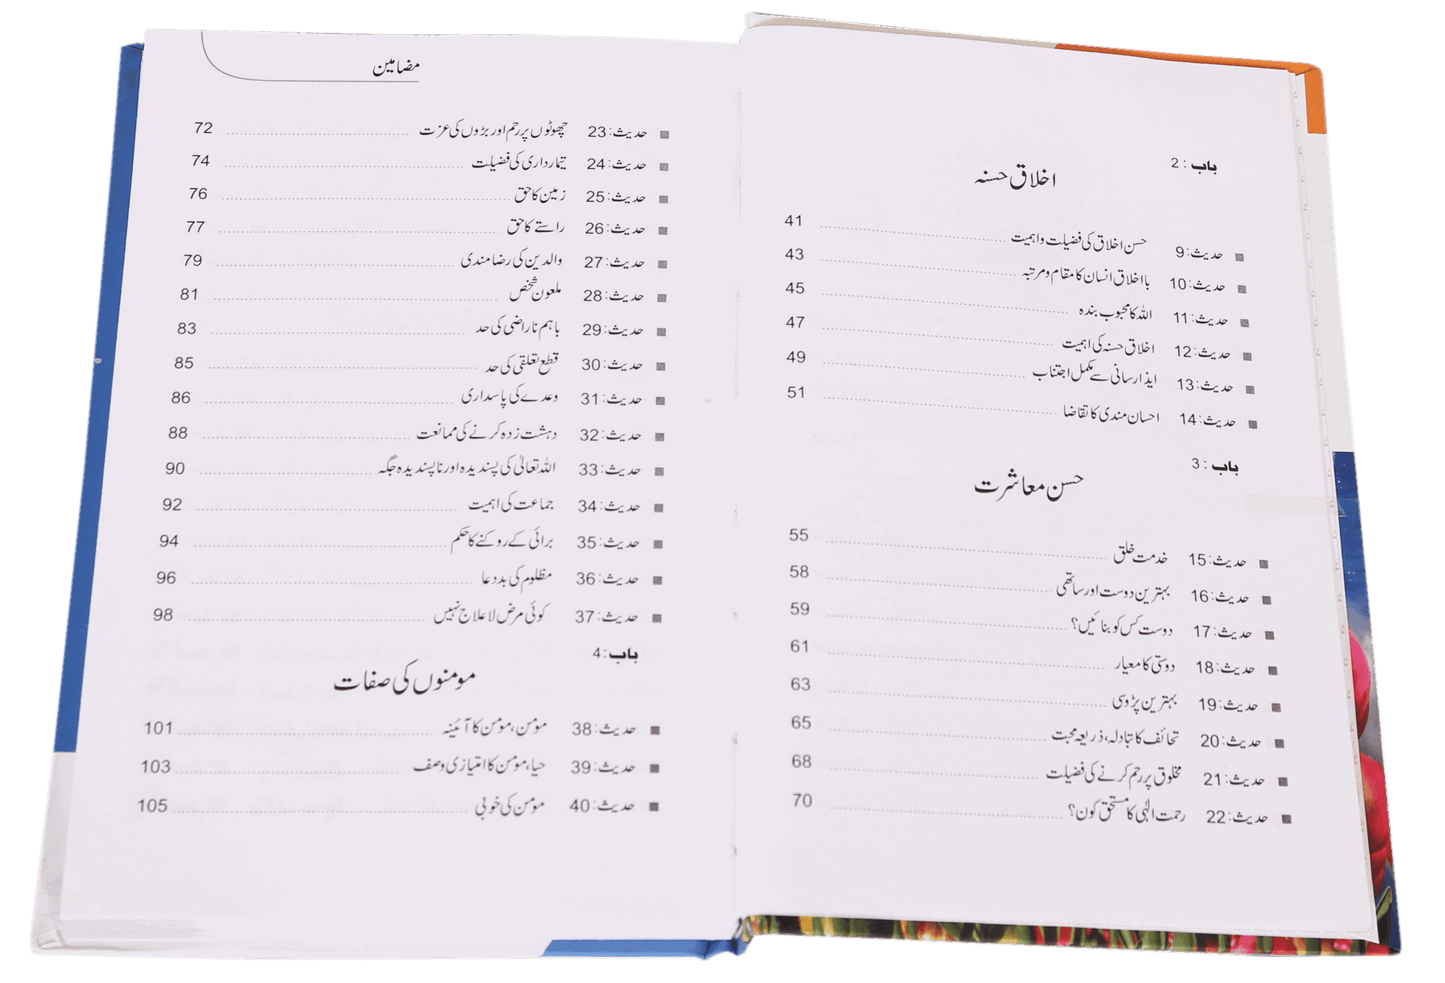 باب : 2
اخلاق حسنہ
حدیث: 9 حسن اخلاق کی فضیلت و اہمیت ........ 41
حدیث: 10 با اخلاق انسان کا مقام و مرتبہ ........ 43
حدیث: 11 اللہ کا محبوب بندہ ........ 45
حدیث: 12 اخلاق حسنہ کی اہمیت ........ 47
حدیث: 13 ایذا رسانی سے مکمل اجتناب ........ 49
حدیث: 14 احسان مندی کا تقاضا ........ 51
باب : 3
حسن معاشرت
حدیث: 15 خدمت خلق ........ 55
حدیث: 16 بہترین دوست اور ساتھی ........ 58
حدیث: 17 دوست کس کو بنائیں؟ ........ 59
حدیث: 18 دوستی کا معیار ........ 61
حدیث: 19 بہترین پڑوسی ........ 63
حدیث: 20 تحائف کا تبادلہ، ذریعہ محبت ........ 65
حدیث: 21 مخلوق پر رحم کرنے کی فضیلت ........ 68
حدیث: 22 رحمت الٰہی کا مستحق کون؟ ........ 70
مضامین
حدیث: 23 چھوٹوں پر رحم اور بڑوں کی عزت ........ 72
حدیث: 24 تیمارداری کی فضیلت ........ 74
حدیث: 25 زمین کا حق ........ 76
حدیث: 26 راستے کا حق ........ 77
حدیث: 27 والدین کی رضا مندی ........ 79
حدیث: 28 ملعون شخص ........ 81
حدیث: 29 باہم ناراضی کی حد ........ 83
حدیث: 30 قطع تعلقی کی حد ........ 85
حدیث: 31 وعدے کی پاسداری ........ 86
حدیث: 32 دہشت زدہ کرنے کی ممانعت ........ 88
حدیث: 33 اللہ تعالیٰ کی پسندیدہ اور ناپسندیدہ جگہ ........ 90
حدیث: 34 جماعت کی اہمیت ........ 92
حدیث: 35 برائی کے روکنے کا حکم ........ 94
حدیث: 36 مظلوم کی بددعا ........ 96
حدیث: 37 کوئی مرض لا علاج نہیں ........ 98
باب : 4
مومنوں کی صفات
حدیث: 38 مومن، مومن کا آئینہ ........ 101
حدیث: 39 حیا، مومن کا امتیازی وصف ........ 103
حدیث: 40 مومن کی خوبی ........ 105